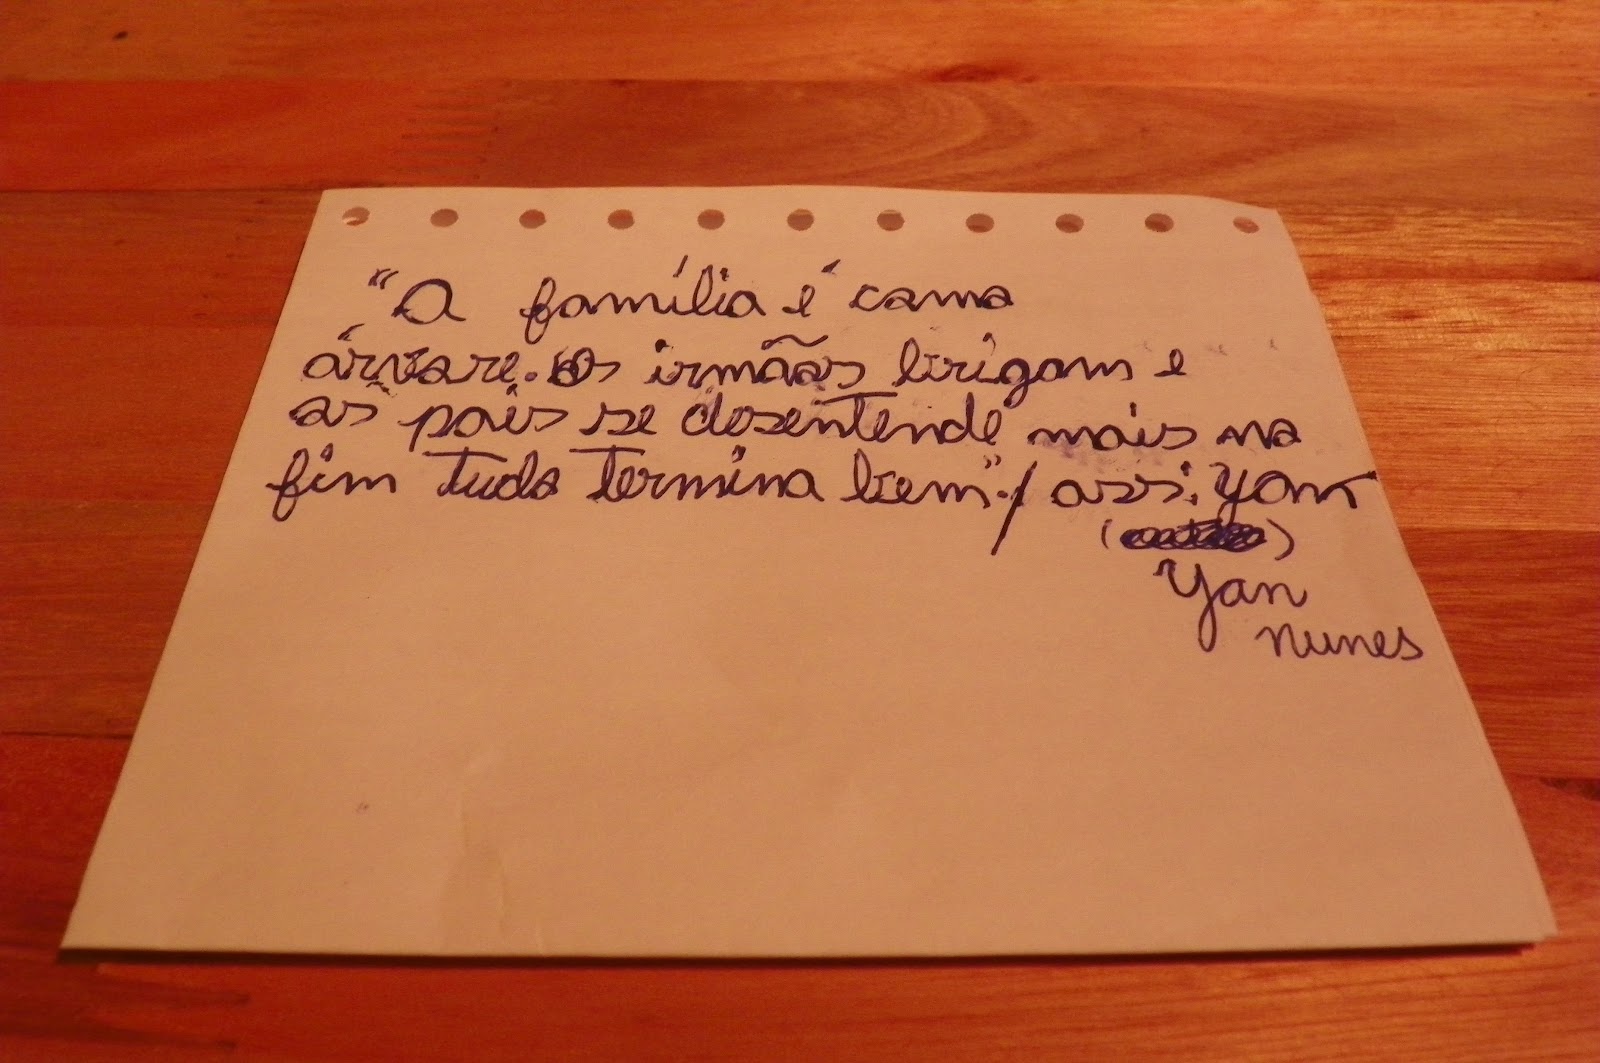 "A família é como
árvore. Os irmãos brigam e
os pais se desentende mais no
fim tudo termina bem"./ ass: Yan
Yan
nunes